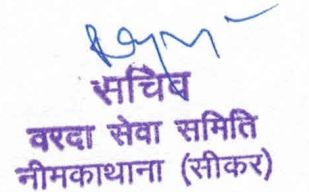 सचिव
वरदा सेवा समिति
नीमकाथाना (सीकर)